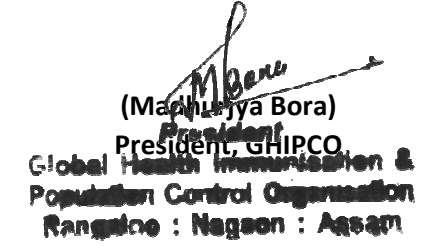 M Bora
(Madhurjya Bora)
President
President, GHIPCO
Global Health Immunisation &
Population Control Organisation
Rangaloo : Nagaon : Assam